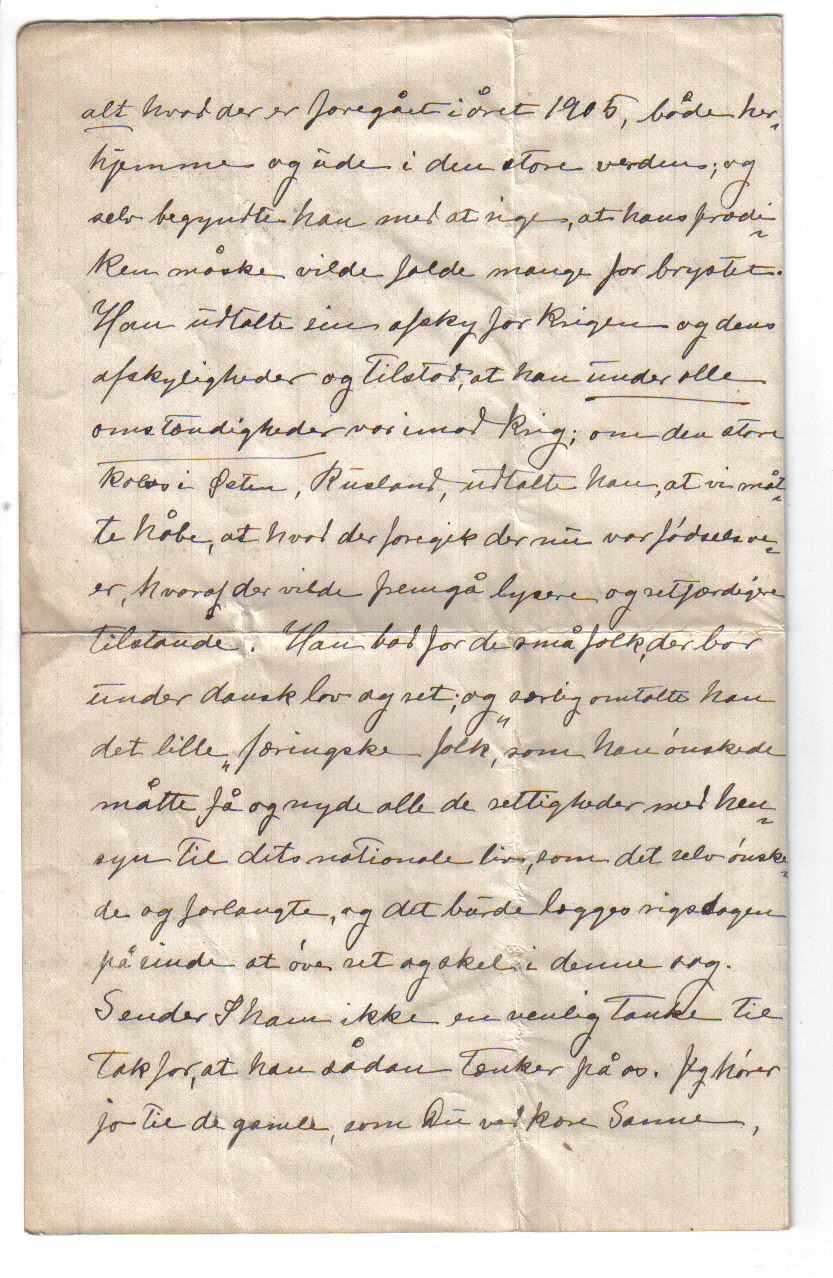 alt hvad der er foregået i året 1905, både her-
hjemme og ude i den store verden; og
selv begyndte han med at sige, at hans prædi-
ken måske vilde falde mange for brystet.
Han udtalte sin afsky for krigen og dens
afskyligheder og tilstod, at han under alle
omstændigheder var imod krig; om den store
kolos i Østen, Rusland, udtalte han, at vi måt-
te håbe, at hvad der foregik der nu var fødselsve-
er, hvoraf der vilde fremgå lysere og retfærdigere
tilstande. Han bad for de små folk, der bor
under dansk lov og ret; og særlig omtalte han
det lille „færingske folk", som han ónskede
måtte få og nyde alle de rettigheder med hen-
syn til dets nationale liv, som det selv ónske-
de og forlangte, og det burde lægges rigsdagen
på sinde at óve ret og skel i denne sag.
Sender I ham ikke en venlig tanke til
tak for, at han sådan tænker på os. Jeg hórer
jo til de gamle, som Du ved kære Sanne,